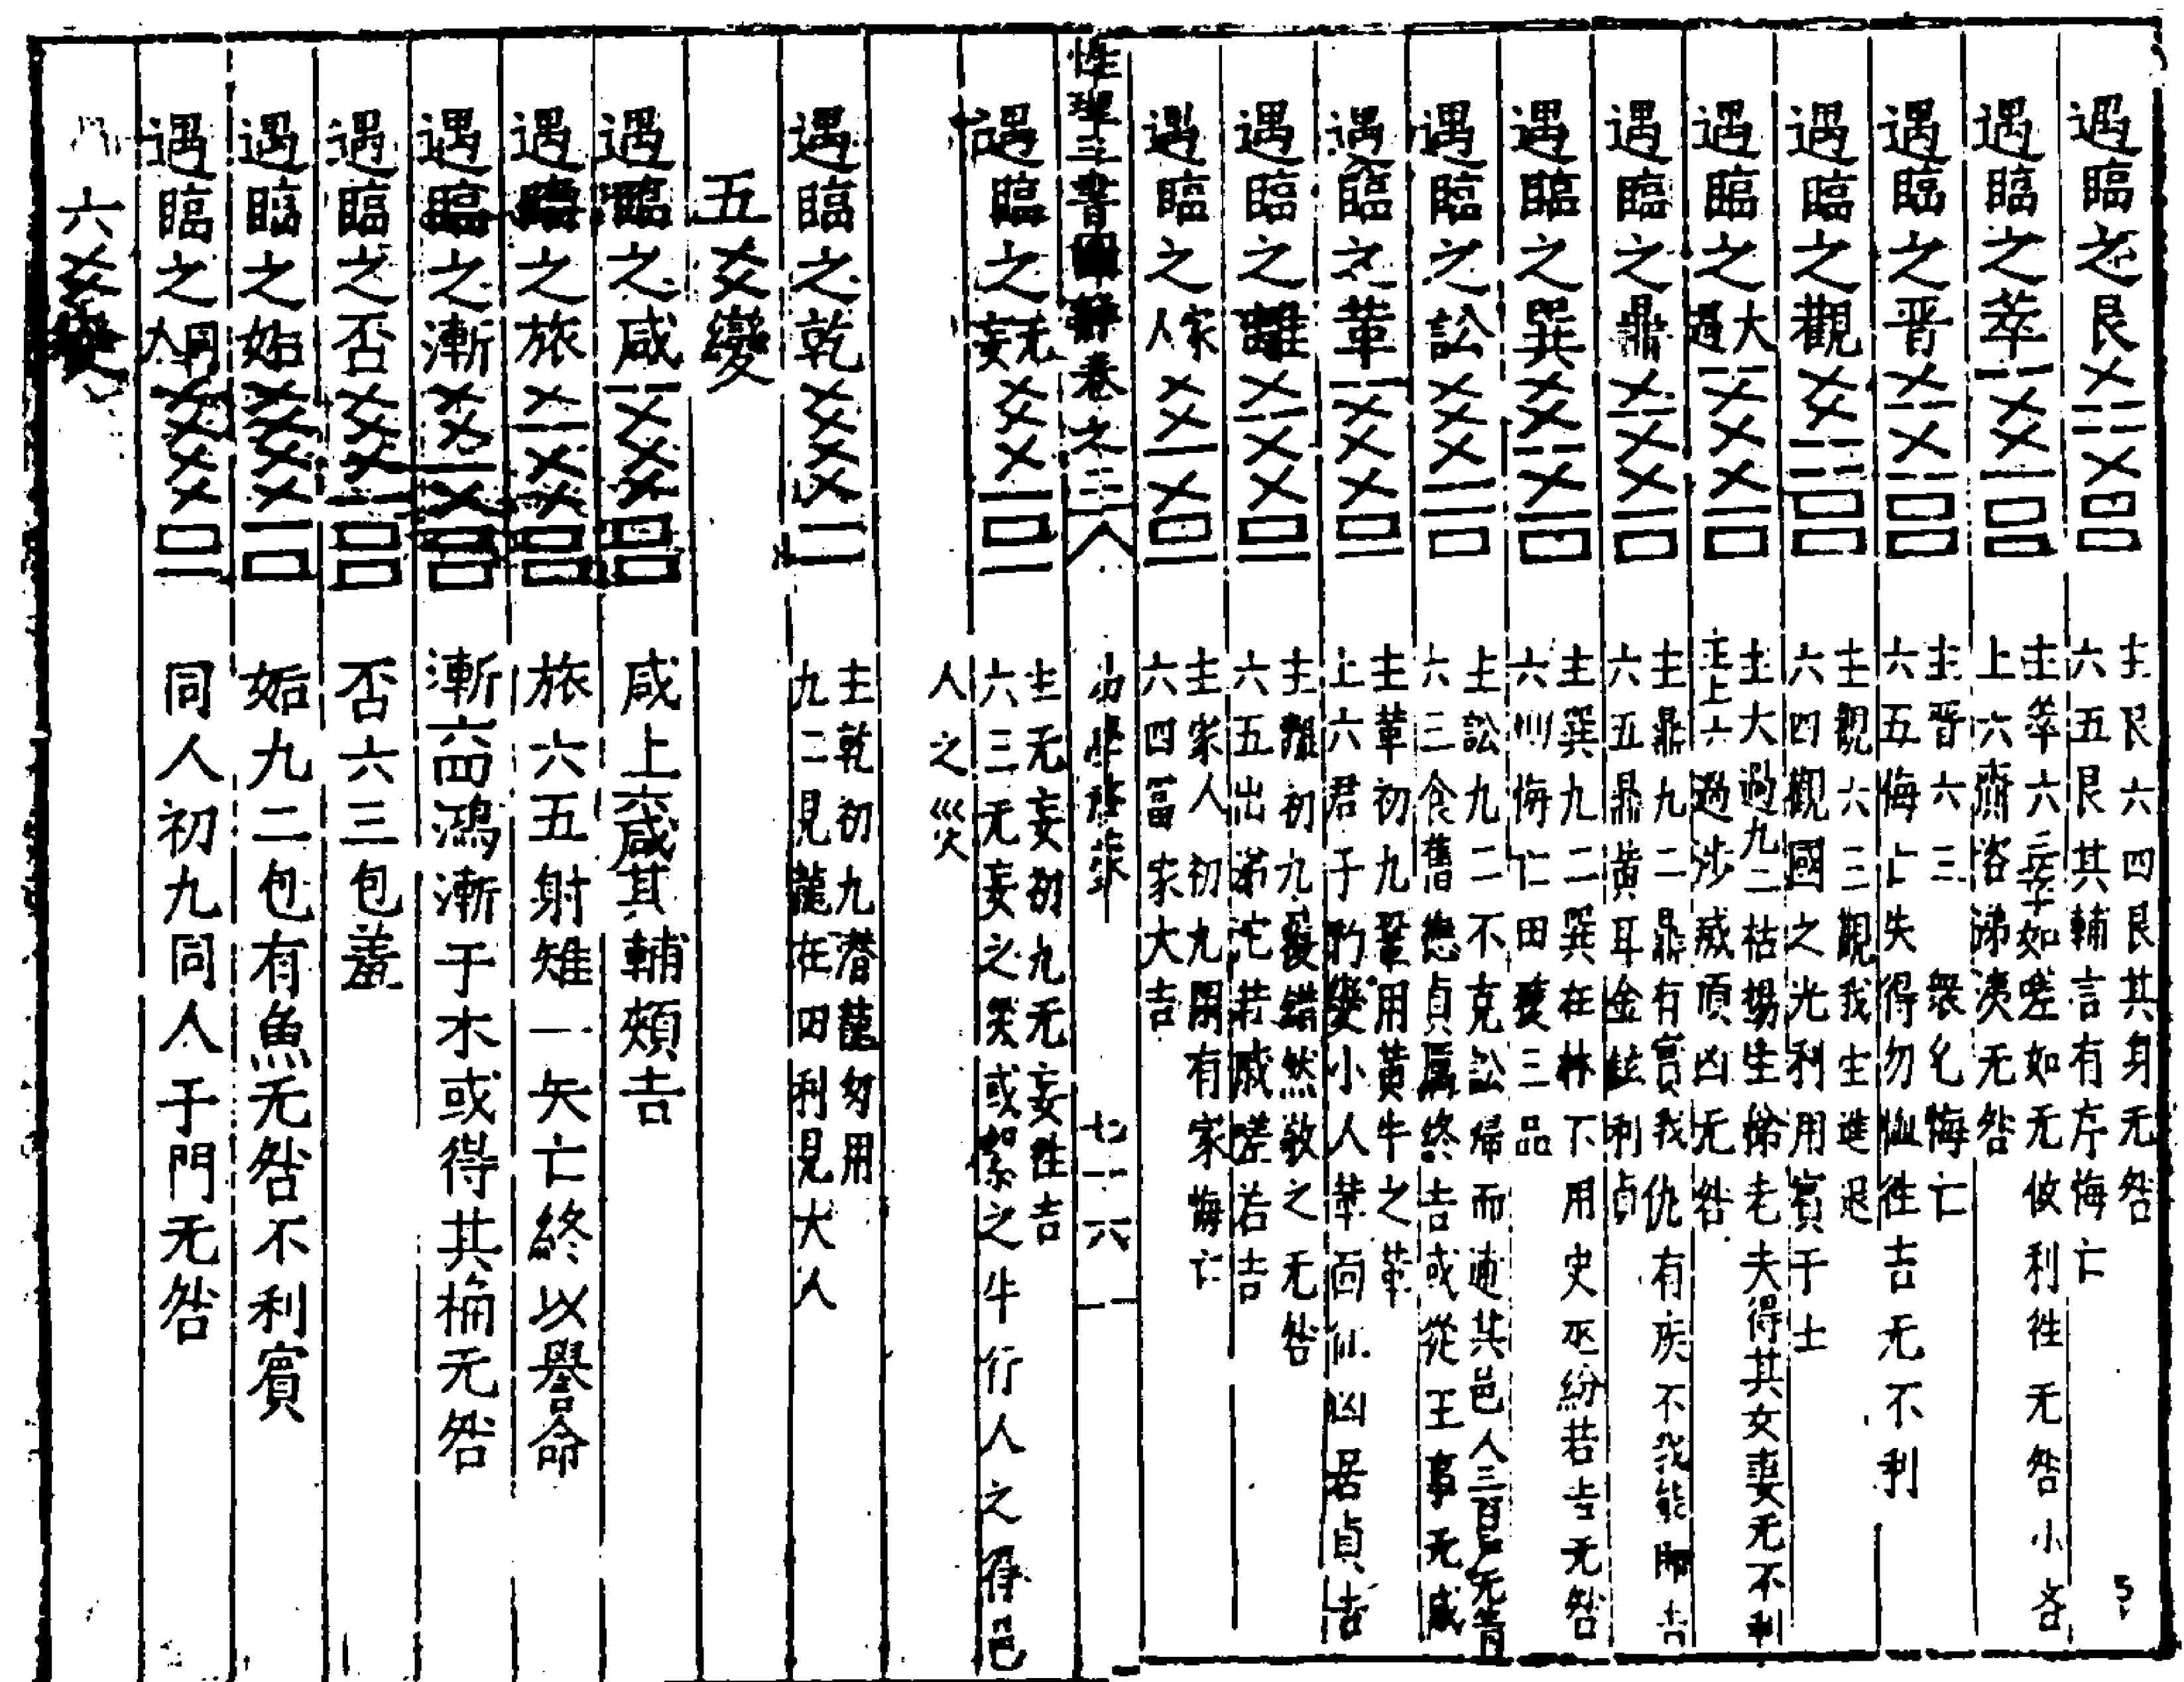 遇臨之艮 主艮六四艮其身无咎
六五艮其輔言有序悔亡
遇臨之萃 主萃六三萃如嗟如无攸利往无咎小吝
上六齎咨涕洟无咎
遇臨之晋 主晋六三衆允悔亡
六五悔亡失得勿恤往吉无不利
遇臨之觀 主觀六三觀我生進退
六四觀國之光利用賓于士
遇臨之大過 主大過九二枯楊生稊老夫得其女妻无不利
主上六過涉滅頂凶无咎
遇臨之鼎 主鼎九二鼎有實我仇有疾不我能即吉
六五鼎黃耳金鉉利貞
遇臨之巽 主巽九二巽在牀下用史巫紛若吉无咎
六四悔亡田獲三品
遇臨之訟 主訟九二不克訟歸而逋其邑人三百戶无眚
六三食舊德貞厲終吉或從王事无成
遇臨之革 主革初九鞏用黃牛之革
上六君子豹變小人革面征凶居貞吉
遇臨之離 主離初九履錯然敬之无咎
六五出涕沱若戚嗟若吉
遇臨之家人 主家人初九閑有家悔亡
六四富家大吉
性理三書圖解卷之三 易學啓蒙 七十六
遇臨之无妄 主无妄初九无妄往吉
六三无妄之災或繫之牛行人之得邑
人之災
遇臨之乾 主乾初九潛龍勿用
九二見龍在田利見大人
五爻變
遇臨之咸 咸上六咸其輔頰舌
遇臨之旅 旅六五射雉一矢亡終以譽命
遇臨之漸 漸六四鴻漸于木或得其桷无咎
遇臨之否 否六三包羞
遇臨之姤 姤九二包有魚无咎不利賓
遇臨之同人 同人初九同人于門无咎
六爻變